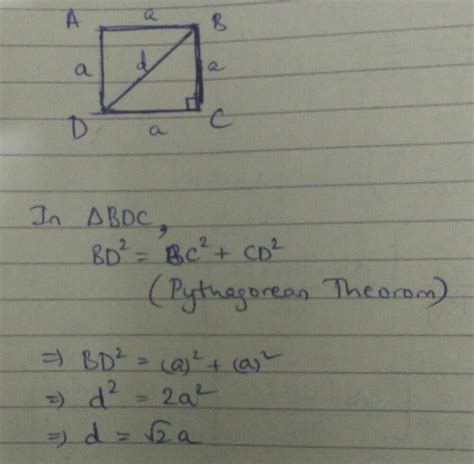 A a B
a d a
D a C
In ΔBDC,
BD² = BC² + CD²
(Pythagorean Theorom)
⇒ BD² = (a)² + (a)²
⇒ d² = 2a²
⇒ d = √2 a